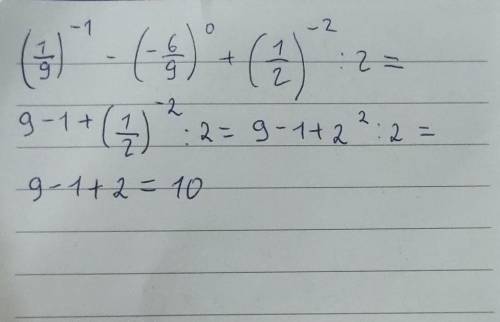 (1/9)^-1 - (-6/9)^0 + (1/2)^-2 : 2 =
9 - 1 + (1/2)^-2 : 2 = 9 - 1 + 2^2 : 2 =
9 - 1 + 2 = 10